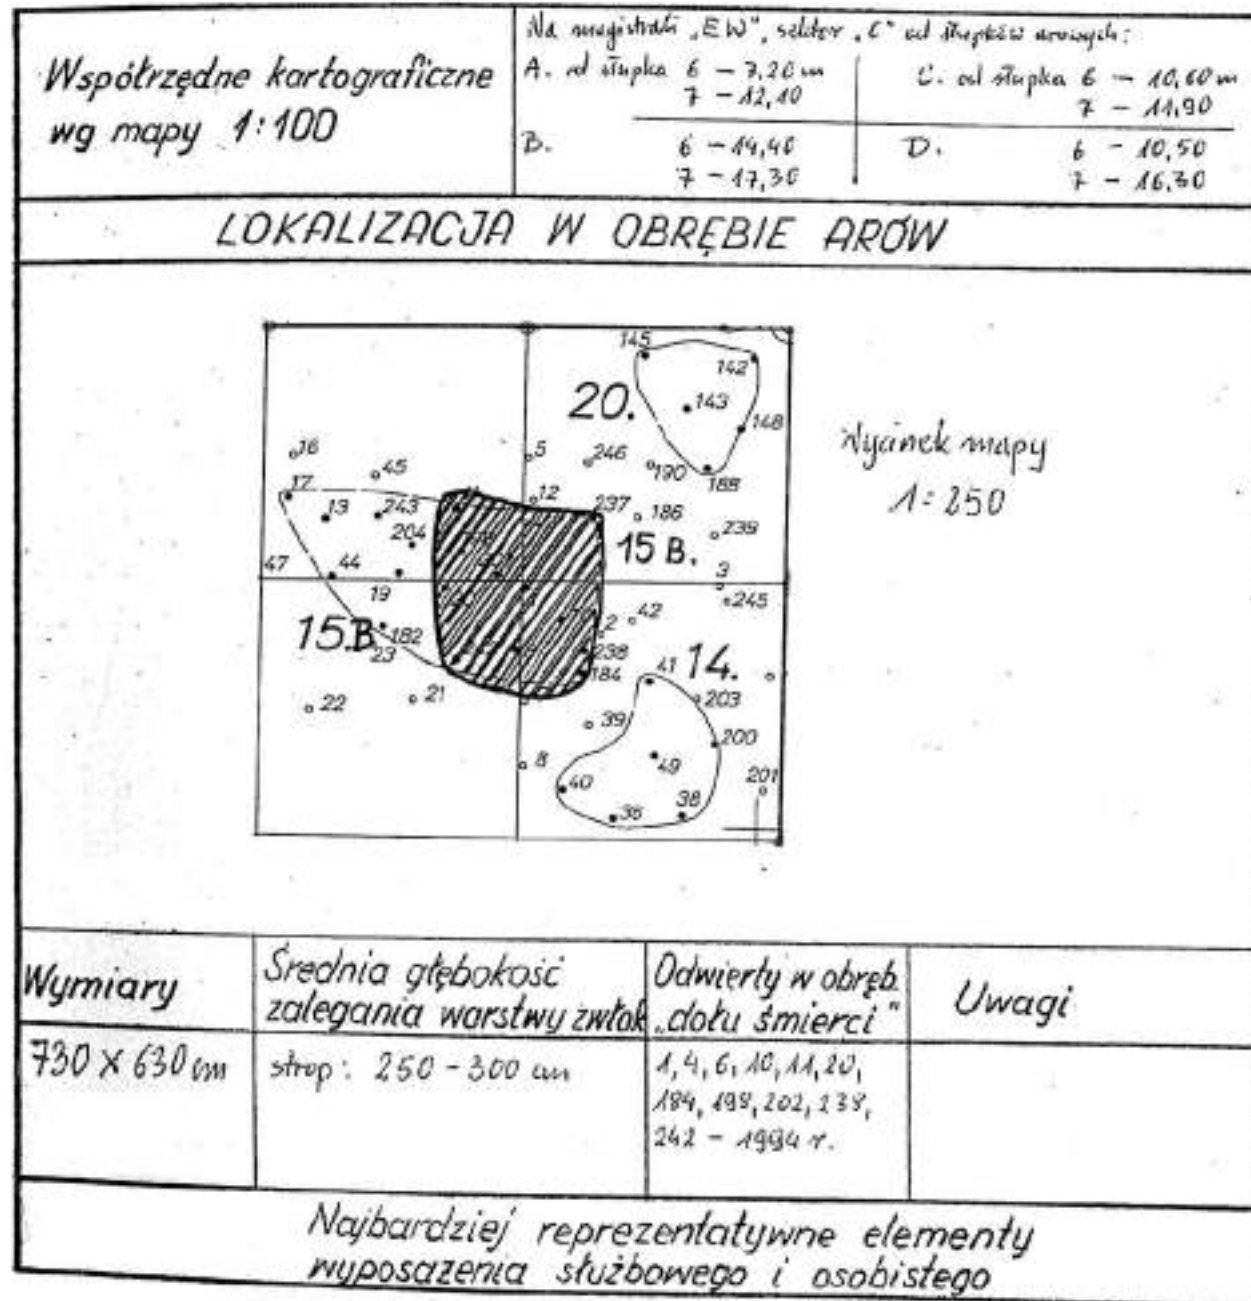 Współrzędne kartograficzne
wg mapy 1:100
Na magistrali „EW", sektor „C" od słupków arowych:
A. od słupka 6 – 7,20 m
7 – 12,10
C. od słupka 6 – 10,60 m
7 – 11,90
B. 6 – 14,40
7 – 17,30
D. 6 – 10,50
7 – 16,30
LOKALIZACJA W OBRĘBIE ARÓW
145
142
20.
143
148
16
5
246
190
188
45
17
12
13
243
237
186
239
204
15 B.
47
44
3
19
245
42
15.B
182
2
23
238
14.
184
41
203
22
21
39
200
8
49
40
201
38
Wycinek mapy
1:250
Wymiary
Średnia głębokość
zalegania warstwy zwłok
Odwierty w obręb.
„dołu śmierci"
Uwagi
730 x 630 cm
strop: 250 – 300 cm
1, 4, 6, 10, 11, 20,
184, 198, 202, 238,
242 – 1994 r.
Najbardziej reprezentatywne elementy
wyposażenia służbowego i osobistego